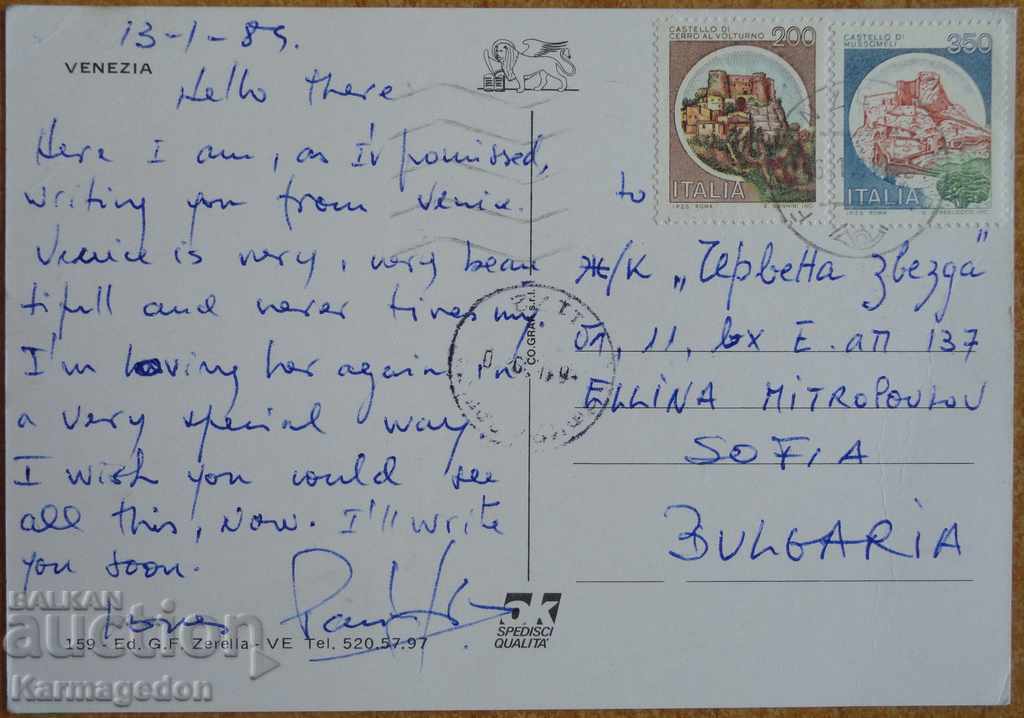 13-1-89.
VENEZIA
Hello there
Here I am, as I promissed,
writing you from Venice.
Venice is very, very beau
tifull and never tires my.
I'm loving her again in
a very special way.
I wish you could see
all this, now. I'll write
you soon.
Loves
159 - Ed. G.F. Zerella - VE Tel. 520.57.97
CO.GRAF s.r.l.
5K
SPEDISCI
QUALITA'
CASTELLO DI
CERRO AL VOLTURNO
200
ITALIA
I.P.Z.S. ROMA
CASTELLO DI
MUSSOMELI
350
ITALIA
I.P.Z.S. ROMA
to
ж/к „Червена звезда"
бл, 11, вх Е. ап 137
ELLINA MITROPOULOU
SOFIA
BULGARIA
BALKAN
auction
Karmagedon